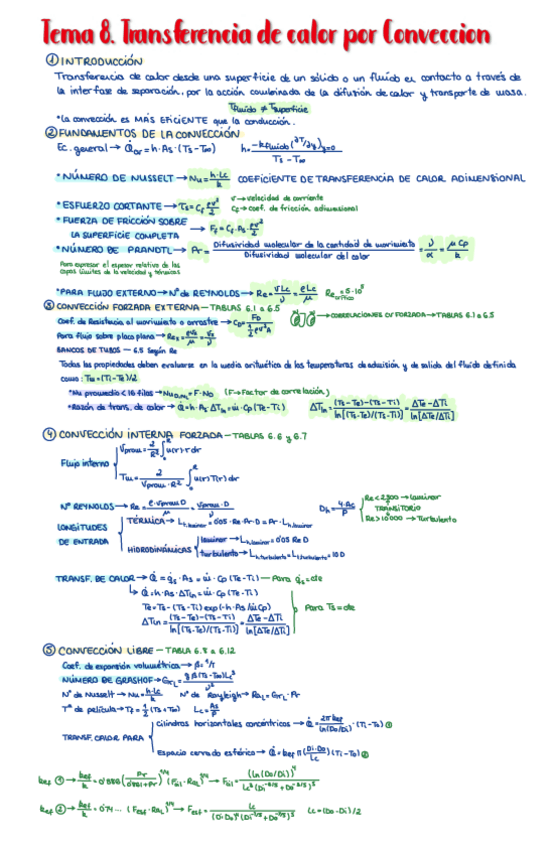 Tema 8. Transferencia de calor por Convección
① INTRODUCCIÓN
Transferencia de calor desde una superficie de un sólido o un fluido en contacto a través de
la interfase de separación, por la acción combinada de la difusión de calor y transporte de masa.
Tfluido ≠ Tsuperficie
*La convección es MÁS EFICIENTE que la conducción.
② FUNDAMENTOS DE LA CONVECCIÓN
Ec. general → Q̇ = h·As·(Ts-T∞) h = -kfluido(∂T/∂y)y=0 / Ts-T∞
*NÚMERO DE NUSSELT → Nu = h·Lc/k COEFICIENTE DE TRANSFERENCIA DE CALOR ADIMENSIONAL
*ESFUERZO CORTANTE → Ts = Cf ρv²/2 v → velocidad de corriente
Cf → coef. de fricción adimensional
*FUERZA DE FRICCIÓN SOBRE
LA SUPERFICIE COMPLETA → Ff = Cf·As·ρv²/2
*NÚMERO DE PRANDTL → Pr = Difusividad molecular de la cantidad de movimiento / Difusividad molecular del calor = ν/α = μCp/k
Para expresar el espesor relativo de las
capas límites de la velocidad y térmicas
*PARA FLUJO EXTERNO → Nº de REYNOLDS → Re = VLc/ν = ρLc/μ Re crítico = 5·10⁵
③ CONVECCIÓN FORZADA EXTERNA - TABLAS 6.1 a 6.5
Coef. de Resistencia al movimiento o arrastre → CD = FD / ½ρv²A → CORRELACIONES CV FORZADA → TABLAS 6.1 a 6.5
Para flujo sobre placa plana → Rex = ρvx/μ = vx/ν
BANCOS DE TUBOS - 6.5 Según Re
Todas las propiedades deben evaluarse en la media aritmética de las temperaturas de admisión y de salida del fluido definida
como: Tm = (Ti-Te)/2
*Nu promedio < 16 filas → NuD,NL = F·ND (F → Factor de correlación)
*Razón de trans. de calor → Q̇ = h·As·ΔTln = ṁ·Cp(Te-Ti) ΔTln = (Ts-Te)-(Ts-Ti) / ln[(Ts-Te)/(Ts-Ti)] = ΔTe-ΔTi / ln[ΔTe/ΔTi]
④ CONVECCIÓN INTERNA FORZADA - TABLAS 6.6 y 6.7
Flujo interno
Vprom = 2/R² ∫₀ᴿ u(r)·r dr
Tm = 2/Vprom·R² ∫₀ᴿ u(r)T(r) dr
Nº REYNOLDS → Re = ρ·Vprom D/μ = Vprom·D/ν Dh = 4·As/P
Re<2300 → laminar
TRANSITORIO
Re>10000 → Turbulento
LONGITUDES
DE ENTRADA
TÉRMICA → Lt,laminar = 0'05·Re·Pr·D = Pr·Lh,laminar
HIDRODINÁMICAS
laminar → Lh,laminar = 0'05 Re D
turbulento → Lh,turbulento = Lt,turbulento = 10 D
TRANSF. DE CALOR → Q̇ = q̇s·As = ṁ·Cp(Te-Ti) — Para q̇s = cte
↳ Q̇ = h·As·ΔTln = ṁ·Cp(Te-Ti)
Te = Ts-(Ts-Ti)exp(-h·As/ṁCp)
ΔTln = (Ts-Te)-(Ts-Ti) / ln[(Ts-Te)/(Ts-Ti)] = ΔTe-ΔTi / ln[ΔTe/ΔTi]
Para Ts = cte
⑤ CONVECCIÓN LIBRE - TABLA 6.8 a 6.12
Coef. de expansión volumétrica → β = 1/T
NÚMERO DE GRASHOF → GrL = gβ(Ts-T∞)Lc³/ν²
Nº de Nusselt → Nu = h·Lc/k Nº de Rayleigh → RaL = GrL·Pr
Tª de película → Tf = ½(Ts+T∞) Lc = As/P
TRANSF. CALOR PARA
Cilindros horizontales concéntricos → Q̇ = 2πkef/ln(Do/Di)·(Ti-To) ①
Espacio cerrado esférico → Q̇ = kef π(Di·Do/Lc)(Ti-To) ②
kef ① → kef/k = 0'386(Pr/0'861+Pr)^1/4 (Fcil·RaL)^1/4 → Fcil = (ln(Do/Di))⁴ / Lc³(Di^-3/5+Do^-3/5)⁵
kef ② → kef/k = 0'74... (Fesf·RaL)^1/4 → Fesf = Lc / (Di·Do)⁴(Di^-7/5+Do^-7/5)⁵ Lc = (Do-Di)/2